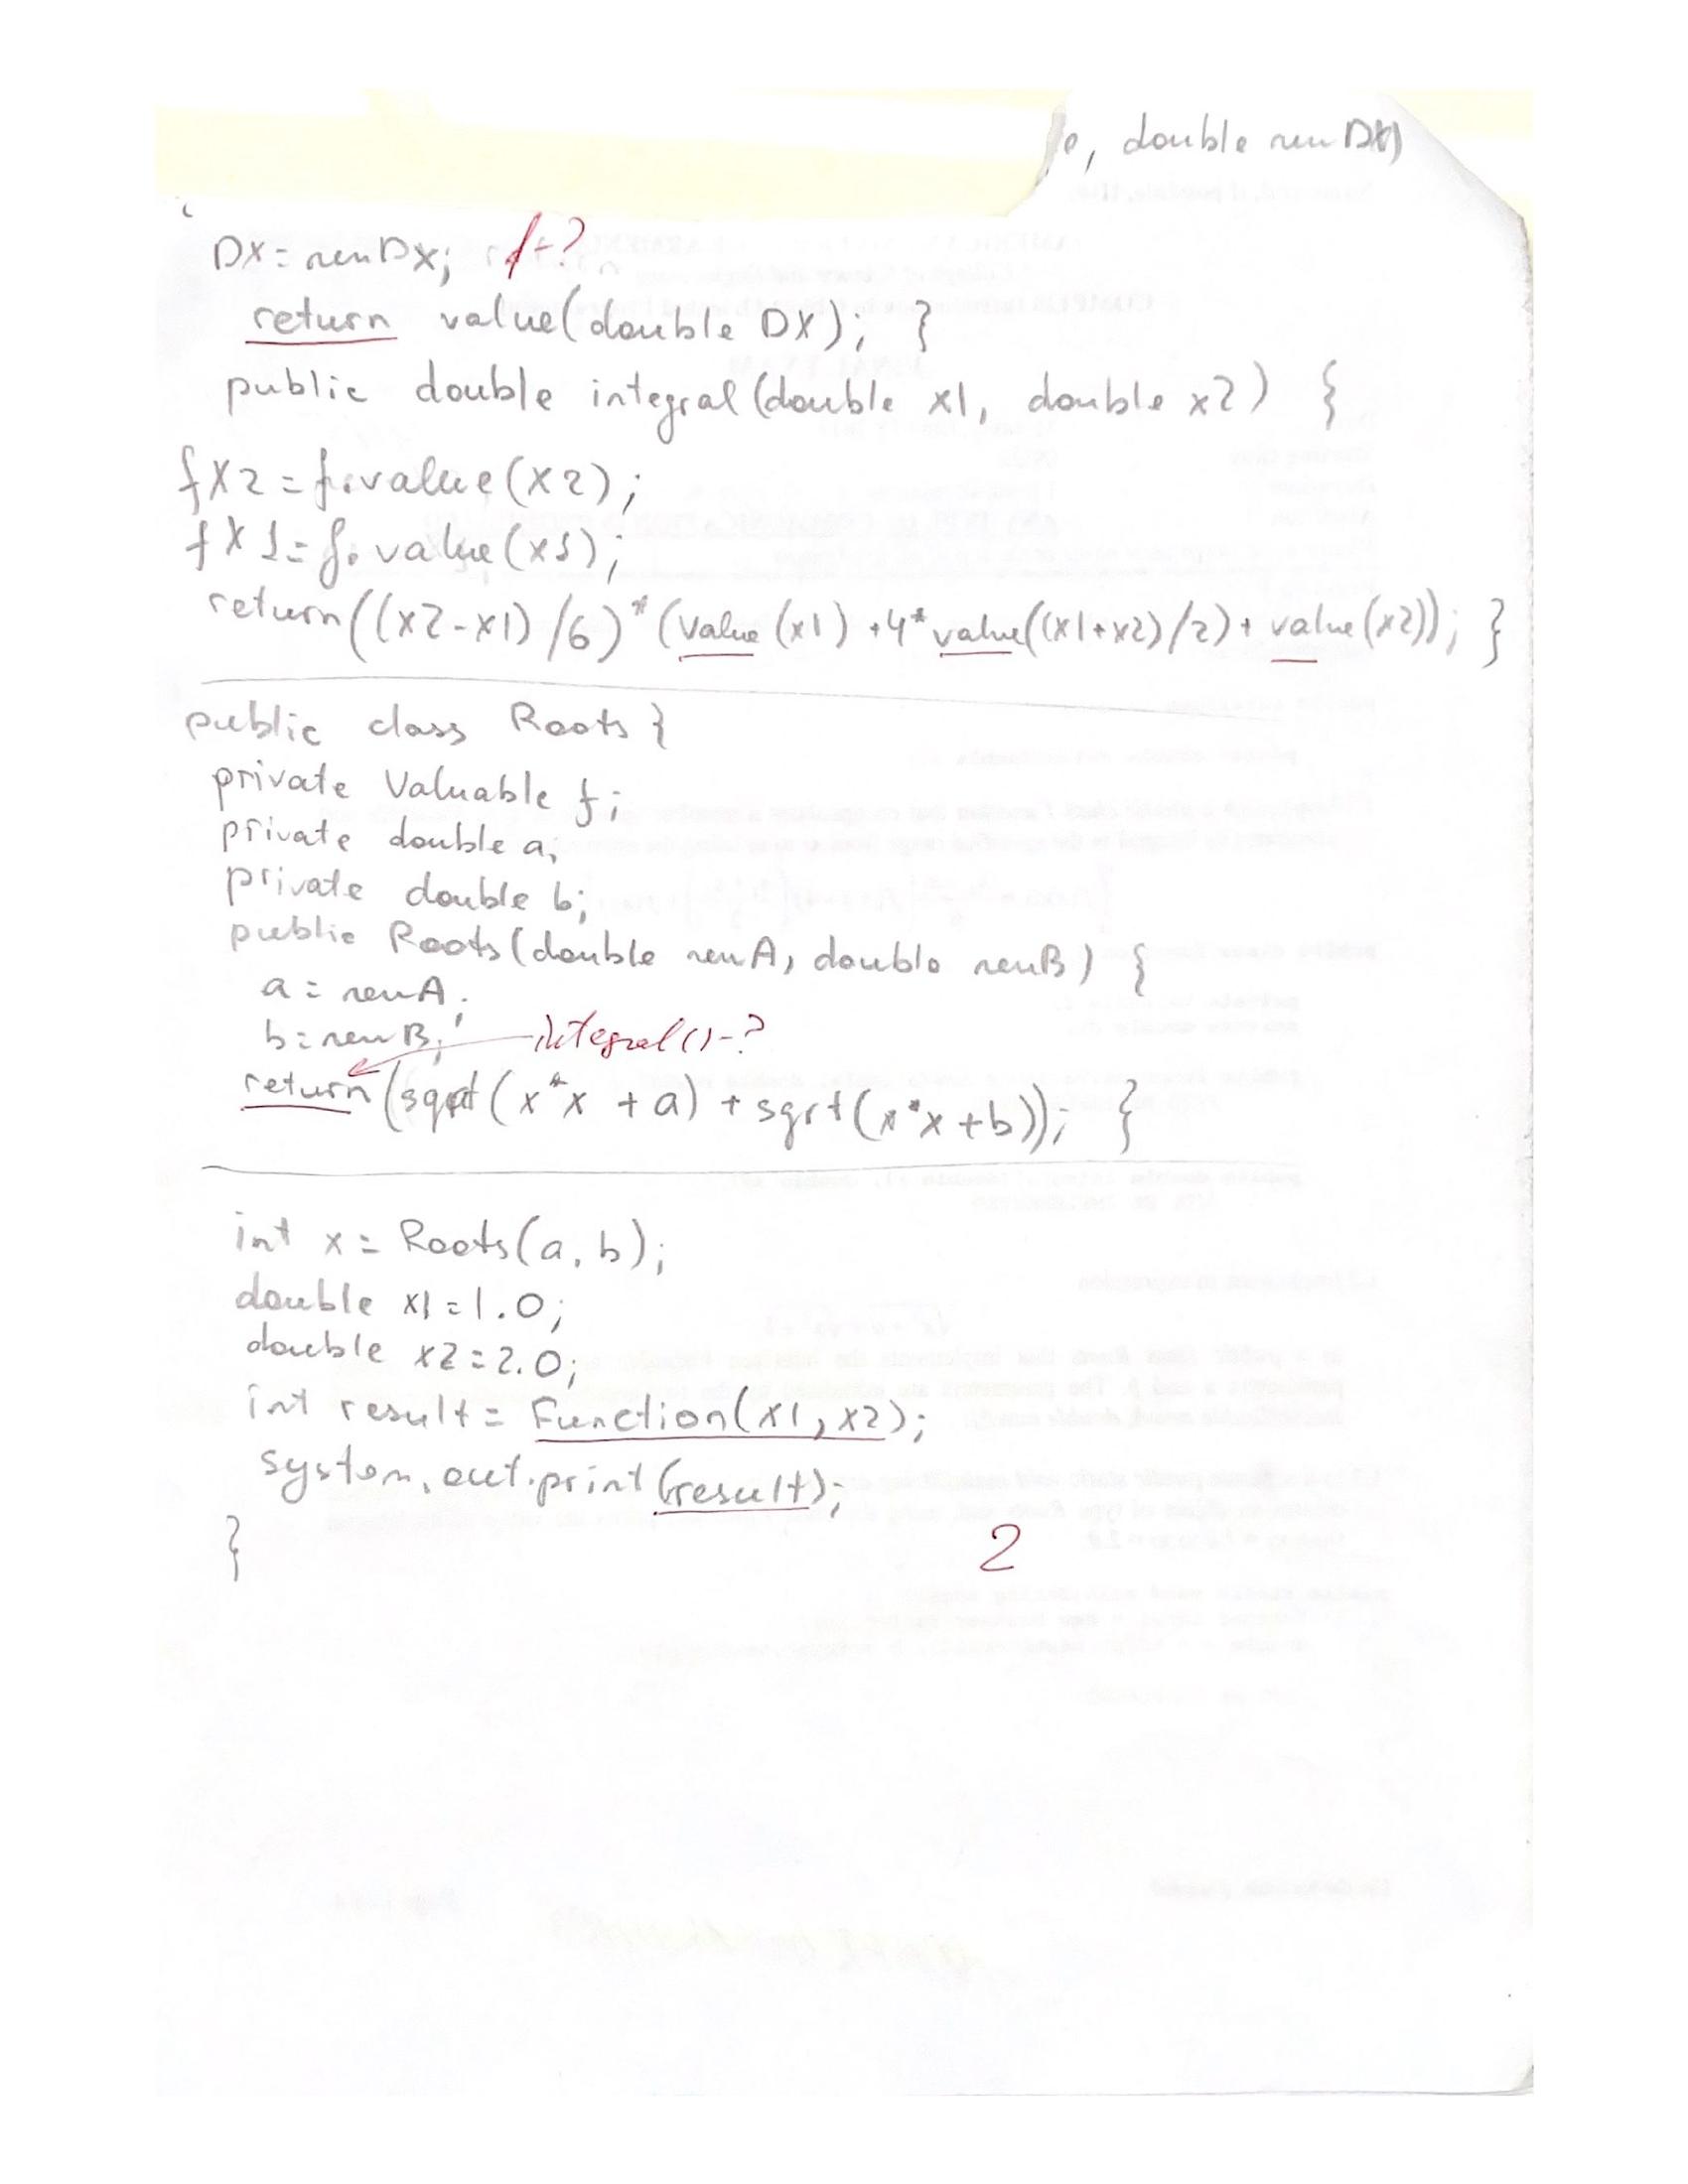 , double newDX)
DX = newDX; f-?
return value(double DX); }
public double integral(double x1, double x2) {
fX2 = f.value(X2);
fX1 = f.value(x1);
return((x2-x1)/6)*(value(x1)+4*value((x1+x2)/2)+value(x2)); }
public class Roots {
private Valuable f;
private double a;
private double b;
public Roots(double newA, double newB) {
a = newA;
b = newB; integral()-?
return (sqrt(x*x + a) + sqrt(x*x+b)); }
int x = Roots(a, b);
double x1 = 1.0;
double x2 = 2.0;
int result = Function(x1, x2);
system.out.print(result);
}
2